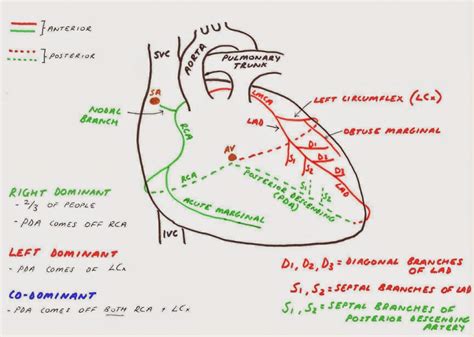 ANTERIOR
POSTERIOR
SVC
AORTA
PULMONARY
TRUNK
SA
NODAL
BRANCH
RCA
LMCA
LEFT CIRCUMFLEX (LCx)
LAD
OBTUSE MARGINAL
AV
S1
S2
D1
D2
D3
LAD
RCA
S1
S2
POSTERIOR DESCENDING
(PDA)
ACUTE MARGINAL
IVC
RIGHT DOMINANT
- 2/3 OF PEOPLE
- PDA COMES OFF RCA
LEFT DOMINANT
- PDA COMES OF LCx
CO-DOMINANT
- PDA COMES OFF BOTH RCA + LCx
D1, D2, D3 = DIAGONAL BRANCHES
OF LAD
S1, S2 = SEPTAL BRANCHES OF LAD
S1, S2 = SEPTAL BRANCHES OF
POSTERIOR DESCENDING
ARTERY